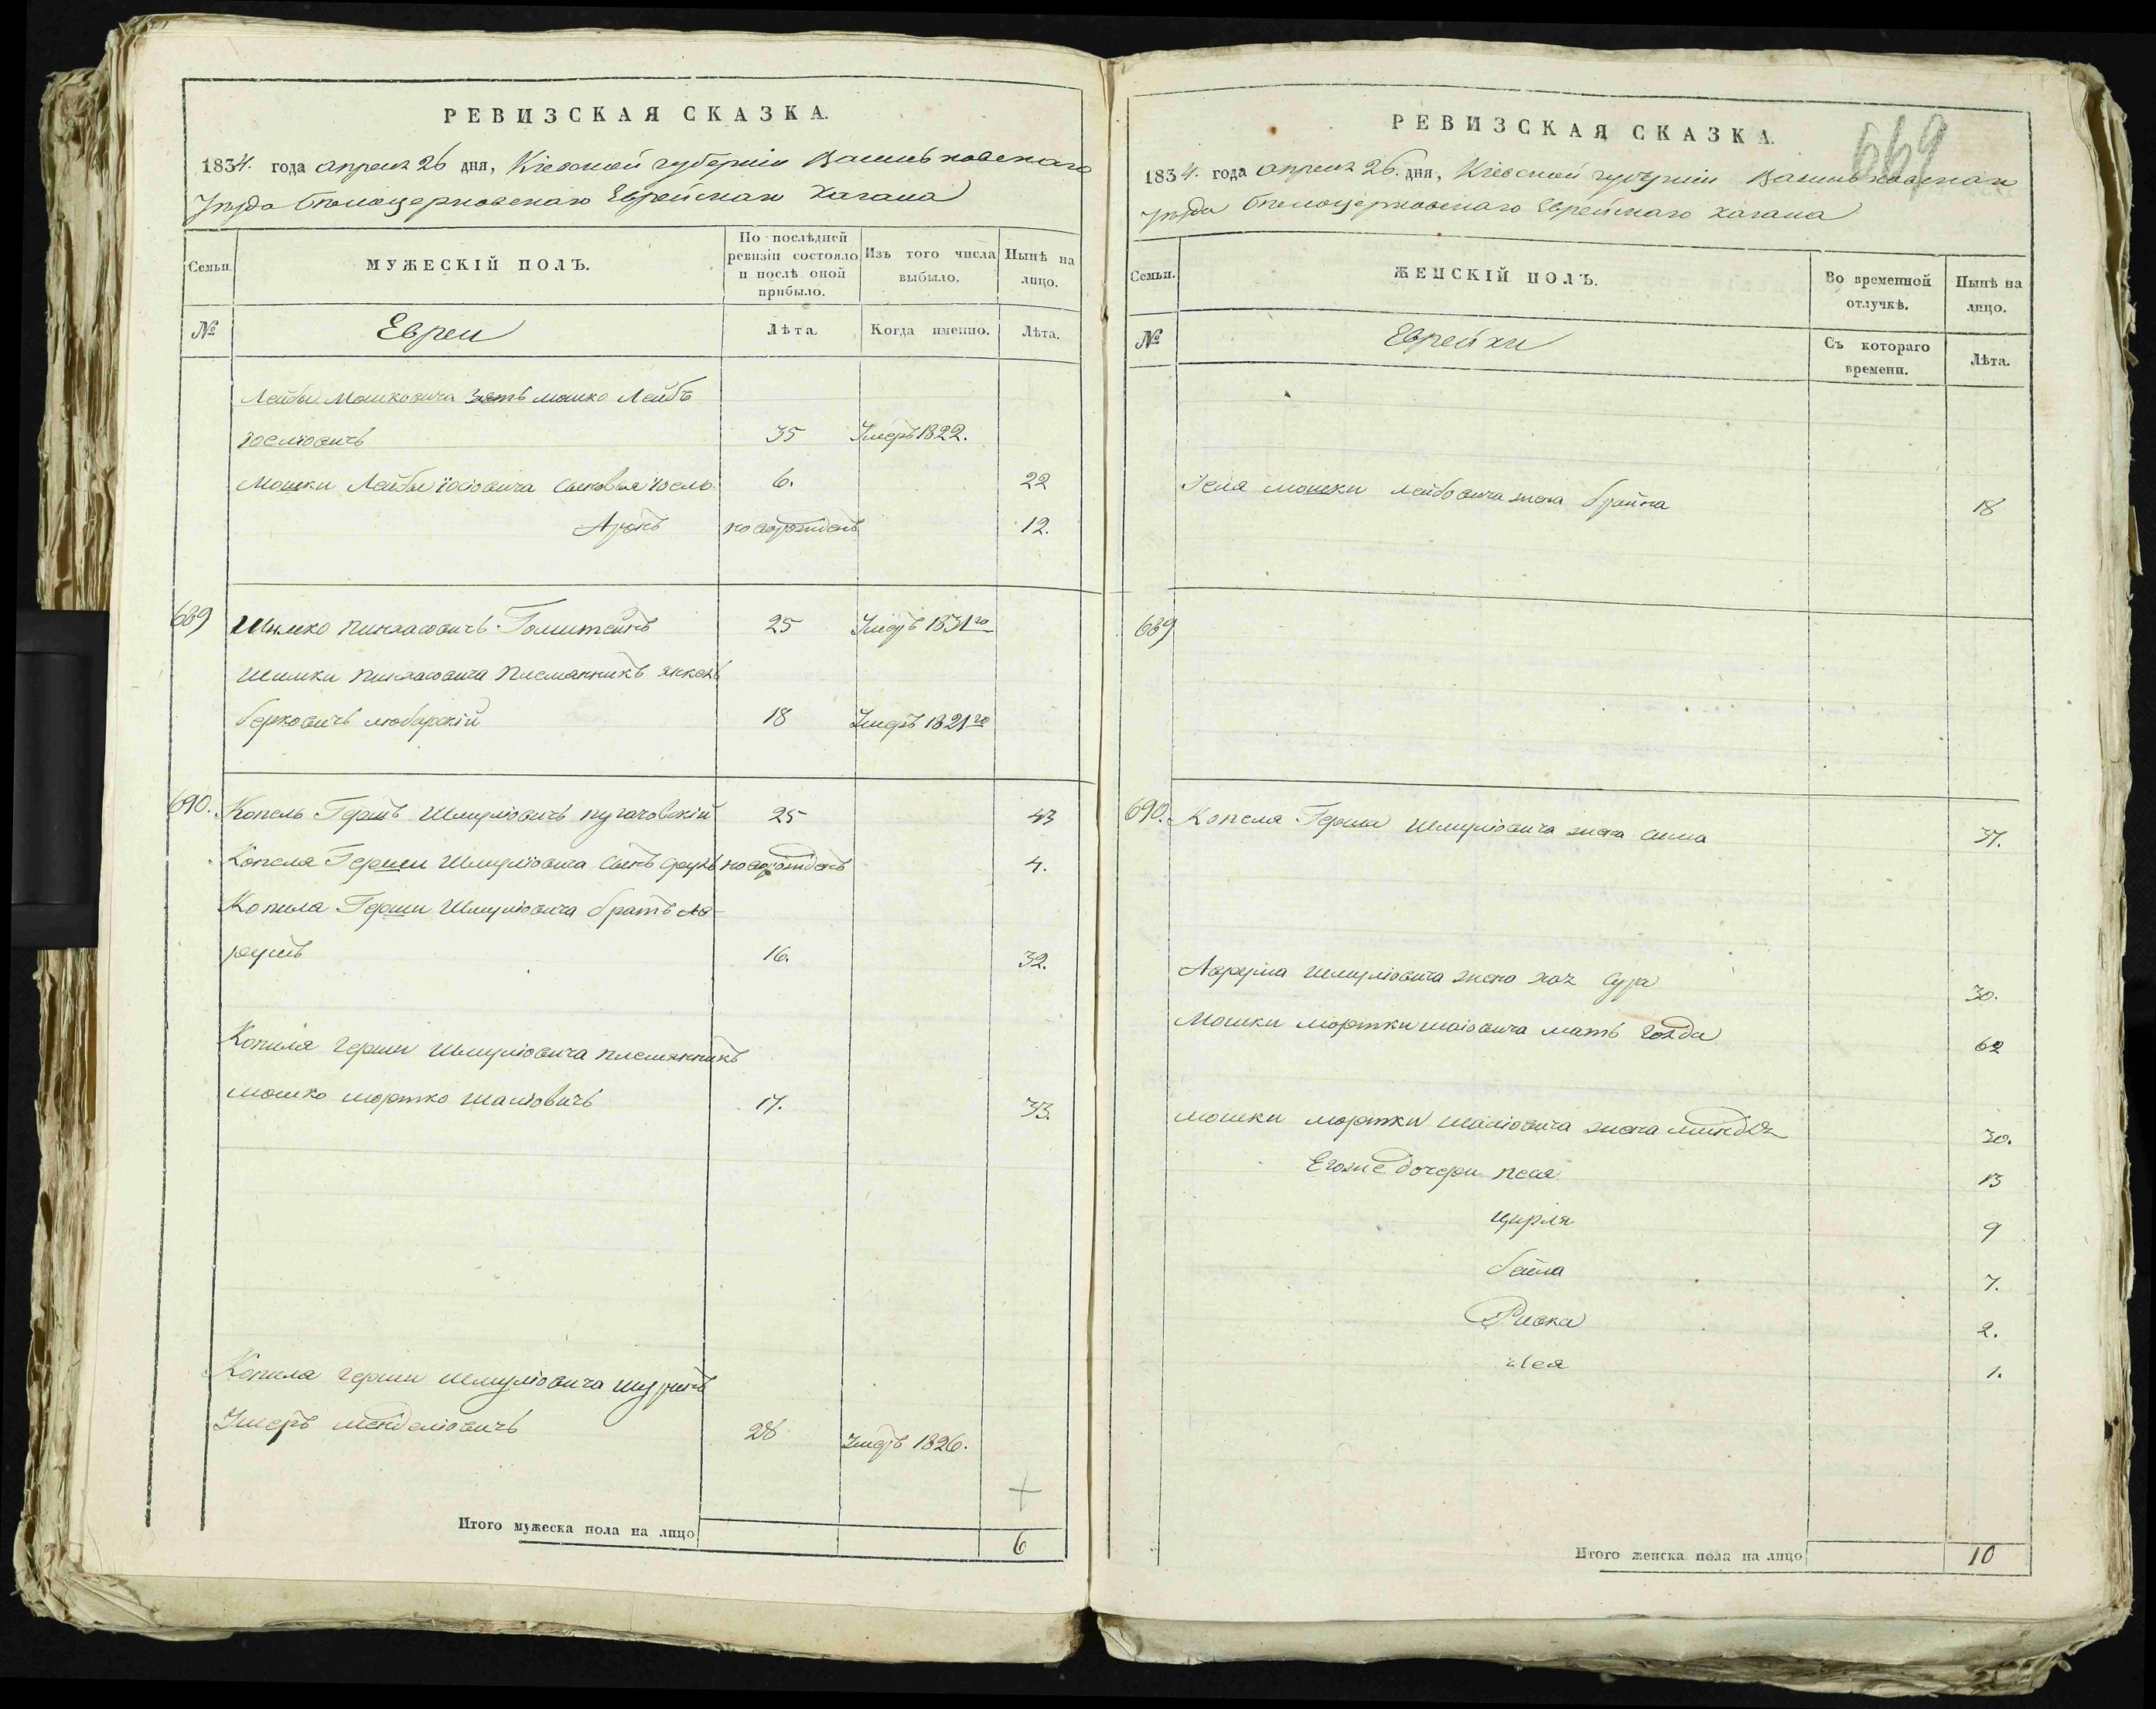 РЕВИЗСКАЯ СКАЗКА.
1834. года апреля 26 дня, Кіевской губерніи Васильковскаго
Уѣзда Бѣлоцерковскаго Еврейскаго Кагала
Семьи.
МУЖЕСКІЙ ПОЛЪ.
По послѣдней ревизіи состояло и послѣ оной прибыло.
Изъ того числа выбыло.
Нынѣ на лицо.
№
Евреи
Лѣта.
Когда именно.
Лѣта.
Лейбы Мошковича зять мошко Лейбъ
Іослювичъ 35 Умеръ 1822.
Мошки Лейбы Іосіовича сыновья Іосль 6. 22
Аронъ новорожденъ 12.
689 Шимко Пинхасовичъ Голштейнъ 25 Умеръ 1831го
Шимки Пинхасовича Племянникъ янкель
берковичъ любарскій 18 Умеръ 1821го
690. Копель Гершъ Шмуліовичъ пугачовскій 25 43
Копеля Герши Шмуліовича сынъ срулъ новорожденъ 4.
Копила Герши Шмуліовича братъ Ав-
румъ 16. 32.
Копиля герши Шмуліовича племянникъ
мошко мортко шаліовичъ 17. 33.
Копила герши шмуліовича шуринъ
менделіовичъ 28 Умеръ 1826.
Итого мужеска пола на лицо 6
669
РЕВИЗСКАЯ СКАЗКА.
1834. года апреля 26. дня, Кіевской губерніи Васильковскаго
Уѣзда Бѣлоцерковскаго Еврейскаго кагала
Семьи.
ЖЕНСКІЙ ПОЛЪ.
Во временной отлучкѣ.
Нынѣ на лицо.
№
Еврейки
Съ котораго времени.
Лѣта.
мошки лейбовича жена брайна 18
689
690. Копеля Герша шмуліовича жена сима 37.
Аврума шмуліовича жена хая Сура 30.
Мошки мортки шаліовича мать голда 62
мошки мортки шаліовича жена миндля 30.
Егоже дочери песя 13
цирля 9
бейла 7.
Ривка 2.
лея 1.
Итого женска пола на лицо 10